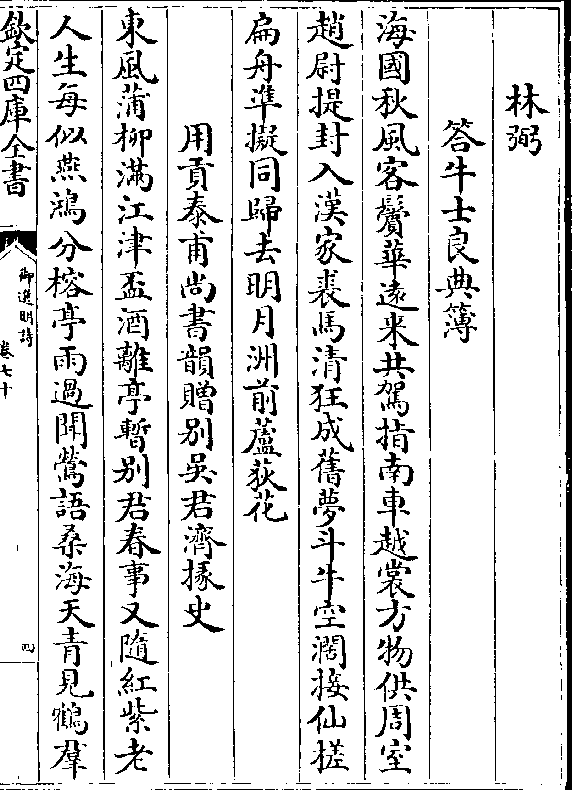 林弼
答牛士良典簿
海國秋風客鬢華遠来共駕指南車越裳方物供周室
趙尉提封入漢家裘馬清狂成舊夢斗牛空濶接仙槎
扁舟準擬同歸去明月洲前蘆荻花
用貢泰甫尚書韻贈别吴君濟掾史
東風蒲柳滿江津盃酒離亭暫别君春事又隨紅紫老
人生每似燕鴻分榕亭雨過聞鶯語桑海天青見鶴羣
欽定四庫全書
御選明詩
卷七十
四